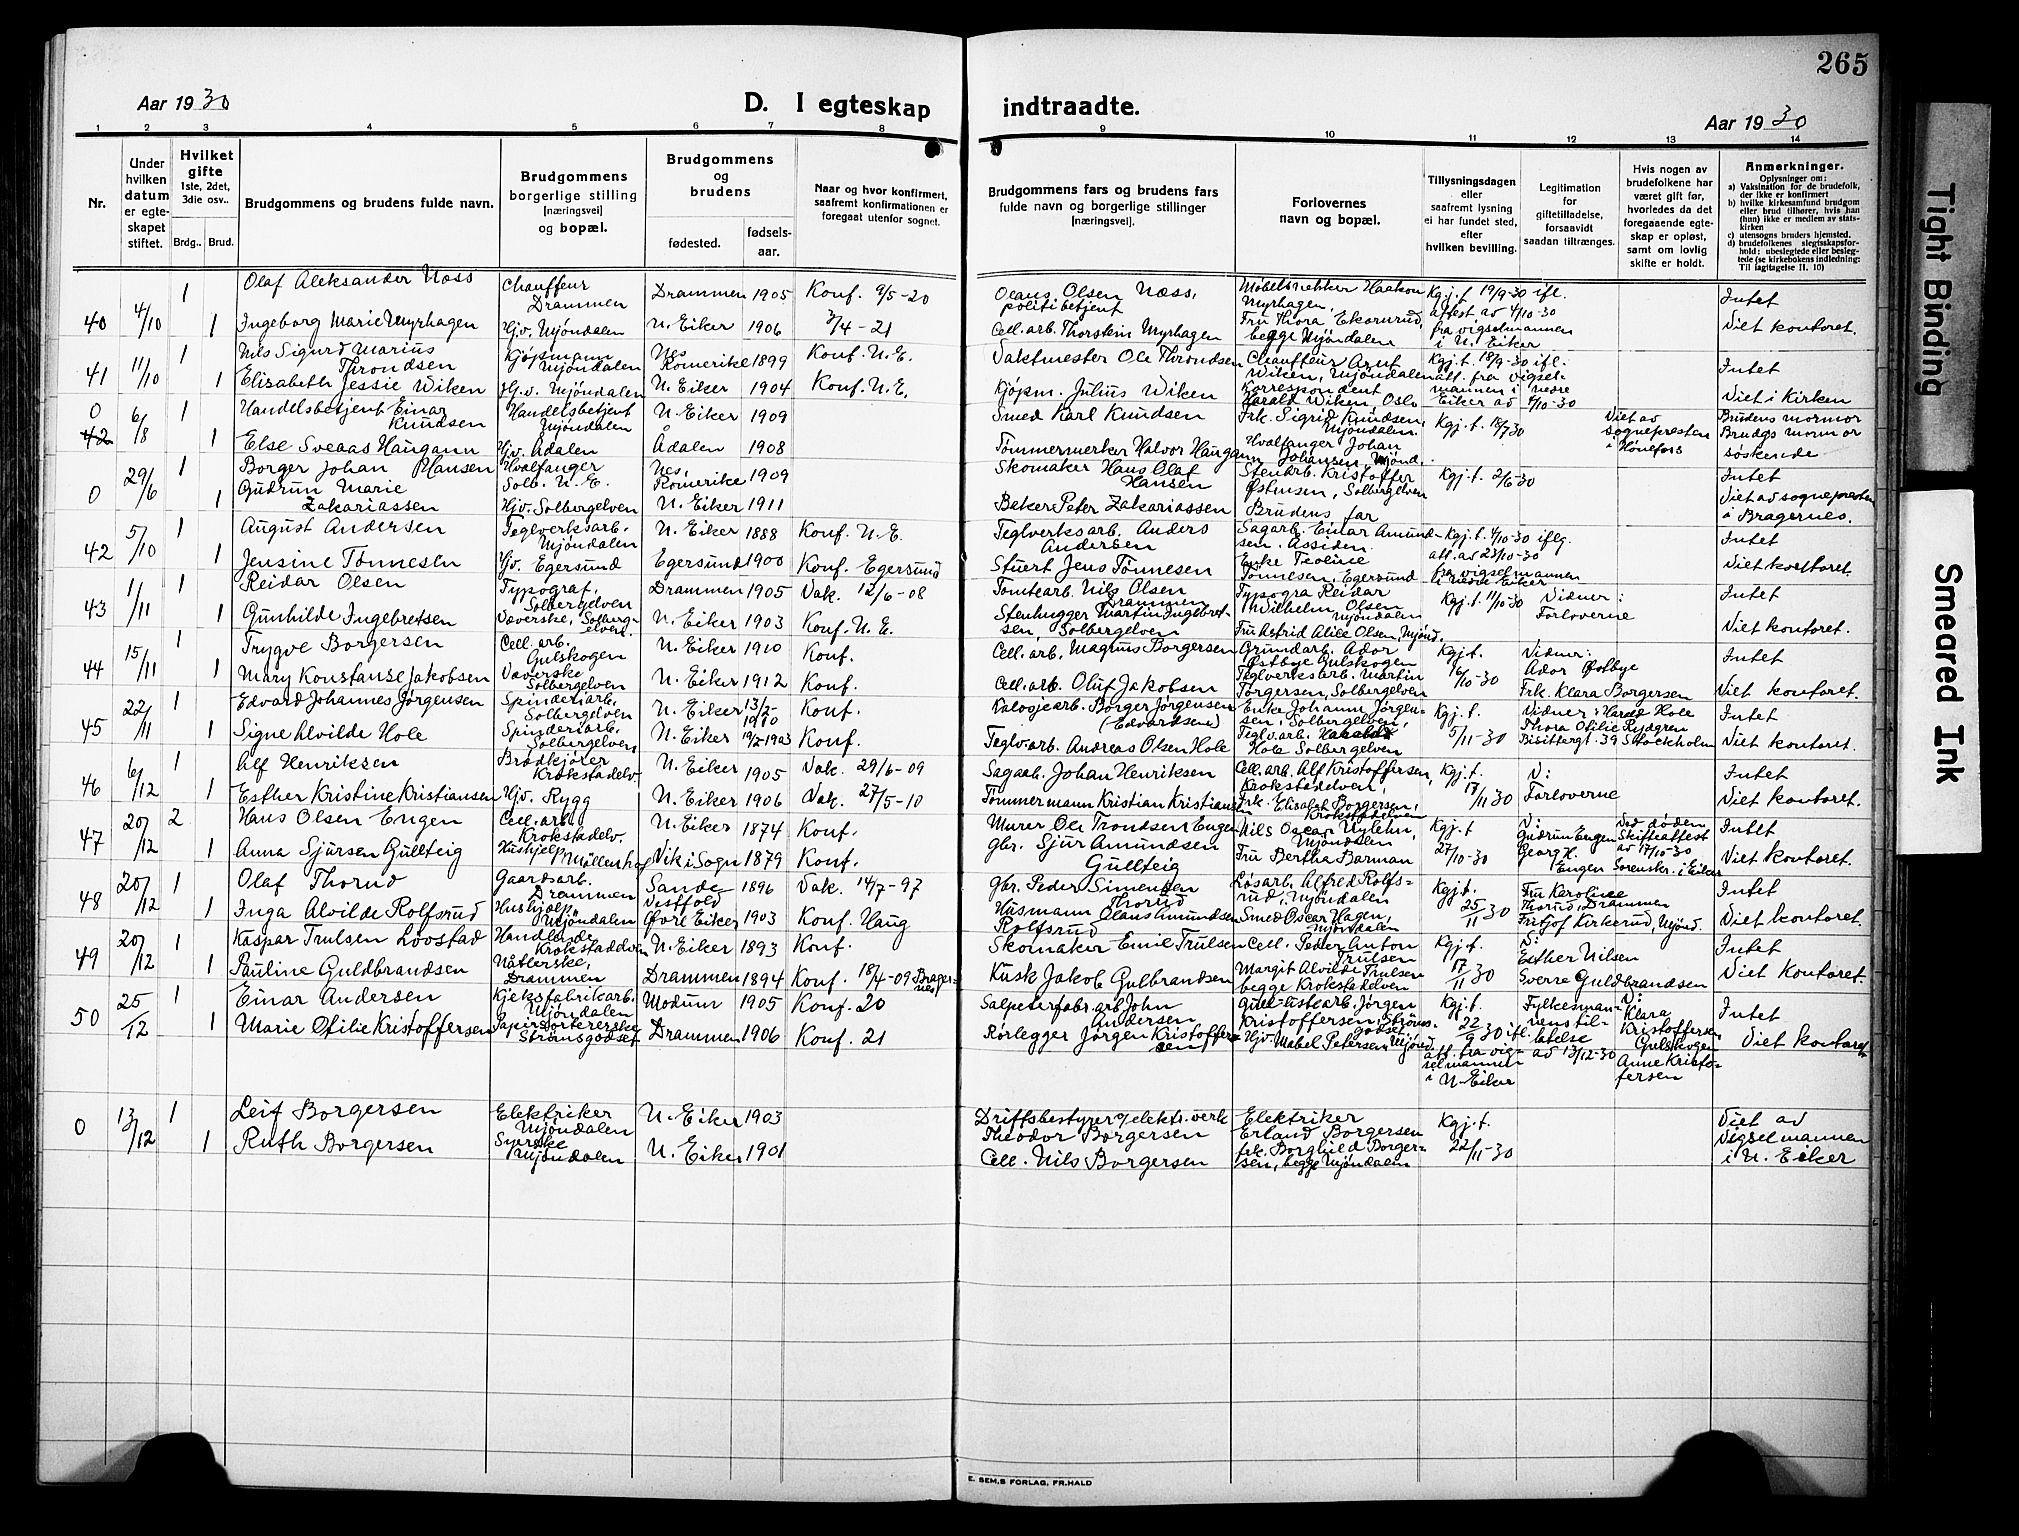 265
Aar 1930
D. I egteskap
indtraadte.
Aar 1930
1 2 3 4 5 6 7 8 9 10 11 12 13 14
Nr.
Under
hvilken
datum
er egte-
skapet
stiftet.
Hvilket
gifte
1ste, 2det,
3die osv..
Brdg..
Brud.
Brudgommens og brudens fulde navn.
Brudgommens
borgerlige stilling
[næringsvei]
og bopæl.
Brudgommens
og
brudens
fødested.
fødsels-
aar.
Naar og hvor konfirmert,
saafremt konfirmationen er
foregaat utenfor sognet.
Brudgommens fars og brudens fars
fulde navn og borgerlige stillinger
[næringsvei].
Forlovernes
navn og bopæl.
Tillysningsdagen
eller
saafremt lysning
ei har fundet sted,
efter
hvilken bevilling.
Legitimation
for
giftetilladelse,
forsaavidt
saadan tiltrænges.
Hvis nogen av
brudefolkene har
været gift før,
hvorledes da det
foregaaende egte-
skap er opløst,
samt om lovlig
skifte er holdt.
Anmerkninger.
Oplysninger om:
a) Vaksination for de brudefolk,
der ikke er konfirmert
b) hvilke kirkesamfund brudgom
eller brud tilhører, hvis han
(hun) ikke er medlem av stats-
kirken
c) utensogns bruders hjemsted.
d) brudefolkenes slegtsskapsfor-
hold: ubeslegtede eller besleg-
tede (se kirkebokens indledning:
Til iagttagelse II. 10)
40 4/10 1 Olaf Aleksander Næss Chauffeur Drammen Drammen 1905 Konf. 9/5-20 Olaus Olsen Næss, politibetjent Møbelsnekker Haakon Myrhagen, Kgj.t. 19/9-30 ifl. Intet
1 Ingeborg Marie Myrhagen Hjv. Mjøndalen N. Eiker 1906 3/4-21 Cell. arb. Thorstein Myrhagen Fru Thora Ekornrud, begge Mjøndalen attest av 4/10-30 fra vigselmannen i N. Eiker Viet kontoret.
41 11/10 1 Nils Sigurd Marius Throndsen Kjøpmann Mjøndalen Nes Romerike 1899 Konf. N.E. Vaktmester Ole Throndsen Chauffeur Arnt Wiken, Mjøndalen Kgj.t. 18/9-30 ifl. Intet
1 Elizabeth Jessie Wiken Hj.v. Mjøndalen N. Eiker 1904 Konf. N.E. Kjøpm. Julius Wiken Korrespondent Harald Wiken Oslo att. fra vigselmannen i nedre Eiker av 4/10-30 Viet i Kirken
0 42 6/8 1 Handelsbetjent Einar Knudsen Handelsbetjent Mjøndalen N. Eiker 1909 Smed Karl Knudsen Frk. Sigrid Knudsen, Mjøndalen. Kgj.t. 18/7 30 Viet av sognepresten i Hønefoss Brudens mormor
1 Else Sveaas Haugann Hjv. Ådalen Ådalen 1908 Tømmermerker Halvor Haugann Hvalfanger Johan Johansen, Mjønd. Brudgs mormor søskende
0 29/6 1 Borger Johan Hansen Hvalfanger Solb. N.E. Nes, Romerike 1909 Skomaker Hans Olaf Hansen Stenarb. Kristoffer Østensen, Solbergelven Kgj.t. 2/6-30 Intet
1 Gudrun Marie Zakariassen Hjv. Solbergelven N. Eiker 1911 Baker Peter Zakariassen Brudens far Viet av sognepresten i Bragernes.
42 5/10 1 August Andersen Teglverksarb. Mjøndalen N. Eiker 1888 Konf. N.E. Teglverksarb. Anders Andersen Sagarb. Einar Amundsen, Assiden. Kgj.t. 4/10-30 iflg. Intet
1 Jensine Tønnesen Hjv. Egersund Egersund 1900 Konf. Egersund Stuert Jens Tønnesen Enke Teoline Tønnesen, Egersund att. av 23/10-30 fra vigselmannen i nedre Eiker Viet kontoret.
43 1/11 1 Reidar Olsen Typograf, Solbergelven Drammen 1905 Vak. 12/6-08 Tomtearb. Nils Olsen Drammen Typogra Reidar Wilhelm Olsen Mjøndalen Kgj.t. 11/10-30 Vidner: Forloverne Intet
1 Gunhilde Ingebretsen Væverske, Solbergelven. N. Eiker 1903 Konf. N.E. Stenhugger Martin Ingebretsen, Solbergelven Fru Astrid Alice Olsen, Mjønd. Viet kontoret.
44 15/11 1 Trygve Borgersen Cell. arb. Gulskogen N. Eiker 1910 Konf. Cell. arb. Magnus Borgersen Grundarb. Ador Østbye Gulskogen Kgj.t. 16/10-30 Vidner: Ador Østbye Intet
1 Mary Konstanse Jakobsen Væverske Solbergelven N. Eiker 1912 Konf. Cell. arb. Oluf Jakobsen Teglverksarb. Martin Torgersen, Solbergelven Frk. Klara Borgersen Viet kontoret.
45 22/11 1 Edvard Johannes Jørgensen Spinderiarb. Solbergelven N. Eiker 13/2-1910 Konf. Kalosjearb. Borger Jørgensen (Edvardsen) Enke Johann Jørgensen, Solbergelven, Kgj.t. 5/11-30 Vidner: Harald Hole Intet
1 Signe Alvilde Hole Spinderiarb. Solbergelven N. Eiker 19/2-1903 Konf. Teglv. arb. Andreas Olsen Hole Teglv. arb. Harald Hole Solbergelven Thora Otilie Rydgren 39 Stockholm Viet kontoret.
46 6/12 1 Alf Henriksen Brødkjører Krokstadelv. N. Eiker 1905 Vak. 29/6-09 Sagarb. Johan Henriksen Cell. arb. Alf Kristoffersen, Krokstadelven, Kgj.t. 17/11 30 V: Forloverne Intet
1 Esther Kristine Kristiansen Hjv. Rygg N. Eiker 1906 Vak. 27/5-10 Tømmermann Kristian Kristiansen Frk. Elisabet Borgersen, Krokstadelven Viet kontoret.
47 20/12 2 Hans Olsen Engen Cell. arb. Krokstadelv. N. Eiker 1874 Konf. Murer Ole Trondsen Engen Nils Oscar Nylehn, Mjøndalen Kgj.t 27/10-30 V: Gudrun Engen Georg H. Engen Ved døden Skifteattest av 17/10-30 Sorenskr. i Eiker Intet
1 Anna Sjursen Gullteig Hushjelp Møllenhof Vik i Sogn 1879 Konf. gbr. Sjur Amundsen Gullteig Fru Bertha Barman Viet kontoret.
48 20/12 1 Olaf Thorud Gaardsarb. Drammen Sande Vestfold 1896 Vak. 14/7-97 Gbr. Peder Simensen Thorud Løsarb. Alfred Rolfsrud, Mjøndalen Kgj.t. 25/11 30 Fru Karoline Thorud, Drammen Intet
1 Inga Alvilde Rolfsrud Hushjelp Mjøndalen Øvre Eiker 1903 Konf. Haug Husmann Olaus Amundsen Rolfsrud Smed Oscar Hagen, Mjøndalen Fritjof Kirkerud, Mjønd. Viet kontoret.
49 20/12 1 Kaspar Trulsen Lovstad Handlende Krokstadelven N. Eiker 1893 Konf. Skomaker Emil Trulsen Cell. Peder Anton Trulsen Kgj.t. 17/11 30 V: Esther Nilsen Intet
1 Pauline Guldbrandsen Nåtlerske, Drammen Drammen 1894 Konf. 18/4-09 Bragernes Kusk Jakob Gulbrandsen Margit Alvilde Trulsen begge Krokstadelven Sverre Guldbrandsen Viet kontoret.
50 25/12 1 Einar Andersen Kjeksfabrikarb. Mjøndalen Modum 1905 Konf. 20 Salpeterfabr. arb. John Andersen Jørgen Kristoffersen, Strømsgodset Kgj.t. 22/9 30 ifl. Fylkesmannens tillatelse av 13/12-30 V: Klara Kristoffersen Gulskogen Intet
1 Marie Otilie Kristoffersen Papirsortererske Strømsgodset Drammen 1906 Konf. 21 Rørlegger Jørgen Kristoffersen Hjv. Mabel Petersen Mjønd. att. fra vigselmannen i N-Eiker Anne Kristoffersen Viet kontoret
0 13/12 1 Leif Borgersen Elektriker Mjøndalen N. Eiker 1903 Driftsbestyrer v/elektr. verk Theodor Borgersen Elektriker Erland Borgersen Kgj.t. 22/11-30 Viet av
1 Ruth Borgersen Syerske Mjøndalen N. Eiker 1901 Cell. Nils Borgersen frk. Borghild Borgersen, begge Mjøndalen Vigselmannen i N. Eiker
E. SEM,S FORLAG, FR.HALD
Tight Binding
Smeared Ink